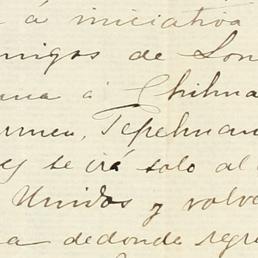 á iniciativa
migos de Lon
ana á Chihua
armen, Tepehuan
ey se irá solo al
Unidos y volve
a dedonde regre